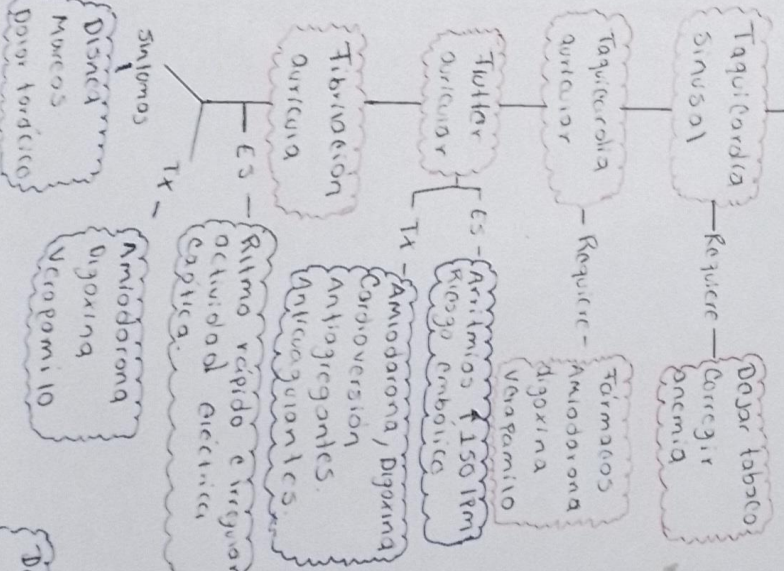 Taquicardia
sinusal
Requiere
Dejar tabaco
Corregir
anemia
Taquicardia
auricular
Requiere
Fármacos
Amiodarona
digoxina
Verapamilo
Flutter
auricular
ES
Arritmias ↑ 150 lpm
Riesgo embólico
Tx
Amiodarona, Digoxina
Cardioversión
Antiagregantes.
Anticoagulantes.
Fibrilación
auricula
ES
Ritmo rápido e irregular
actividad eléctrica
Caótica
Síntomas
Disnea
Mareos
Dolor torácico
Tx
Amiodarona
Digoxina
Verapamilo